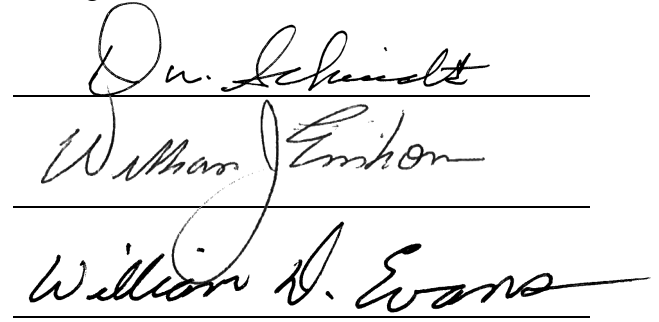 Dw. Schmidt
William J Einhorn
William D. Evans